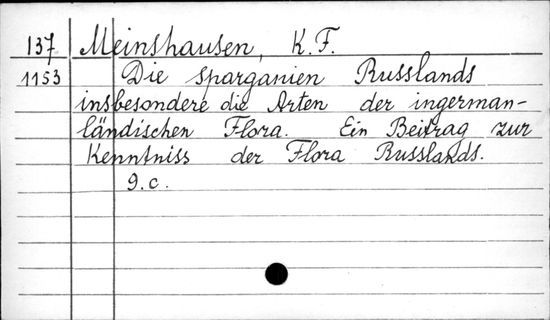 137 Meinshausen, K. F.
1153 Die Sparganien Russlands
insbesondere die Arten der ingerman-
ländischen Flora. Ein Beitrag zur
Kenntniss der Flora Russlands.
9. c.